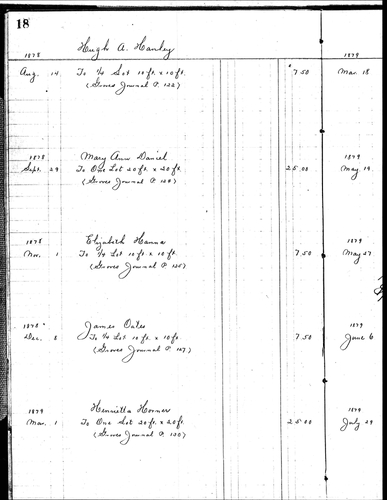 18
Hugh A. Hanley
1878 1879
Aug. 14 To 1/4 Lot 10 ft. x 10 ft. 7.50 Mar. 18
(Graves Journal P. 122)
1878 Mary Ann Daniel 1879
Sept. 29 To One Lot 20 ft. x 20 ft. 25.00 May 19
(Graves Journal P.
1878 Elizabeth Hanna 1879
Nov. 1 To 1/4 Lot 10 ft. x 10 ft. 7.50 May 27
(Graves Journal P.
1878 James Oates 1879
Dec. 8 To 1/4 Lot 10 ft. x 10 ft. 7.50 June 6
(Graves Journal P.
1879 Henrietta Horner 1879
Mar. 1 To One Lot 20 ft. x 20 ft. 25.00 July 29
(Graves Journal P. 130)